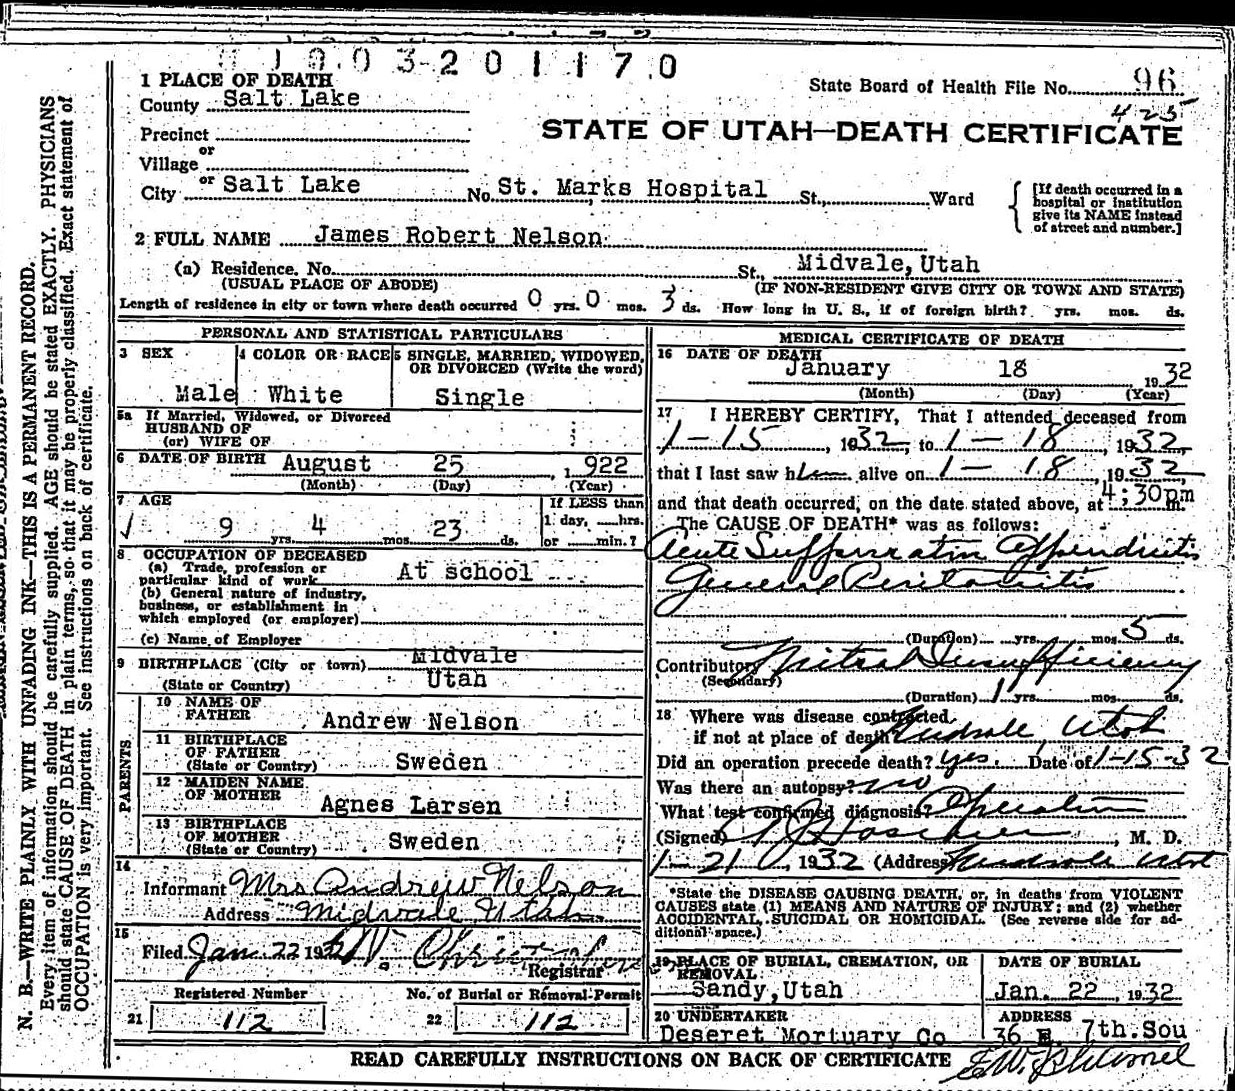 1903201170
1 PLACE OF DEATH
State Board of Health File No. 96
County Salt Lake
425
Precinct
STATE OF UTAH—DEATH CERTIFICATE
or
Village
or
City Salt Lake No. St. Marks Hospital St., Ward
[If death occurred in a
hospital or institution
give its NAME instead
of street and number.]
2 FULL NAME James Robert Nelson
(a) Residence, No. St. Midvale, Utah
(USUAL PLACE OF ABODE) (IF NON-RESIDENT GIVE CITY OR TOWN AND STATE)
Length of residence in city or town where death occurred 0 yrs. 0 mos. 3 ds. How long in U. S., if of foreign birth? yrs. mos. ds.
PERSONAL AND STATISTICAL PARTICULARS
3 SEX 4 COLOR OR RACE 5 SINGLE, MARRIED, WIDOWED,
OR DIVORCED (Write the word)
Male White Single
5a If Married, Widowed, or Divorced
HUSBAND OF
(or) WIFE OF
6 DATE OF BIRTH August 25 1922
(Month) (Day) (Year)
7 AGE If LESS than
9 yrs. 4 mos. 23 ds. 1 day, hrs.
or min.?
8 OCCUPATION OF DECEASED
(a) Trade, profession or
particular kind of work At school
(b) General nature of industry,
business, or establishment in
which employed (or employer)
(c) Name of Employer
9 BIRTHPLACE (City or town) Midvale
(State or Country) Utah
PARENTS
10 NAME OF
FATHER Andrew Nelson
11 BIRTHPLACE
OF FATHER
(State or Country) Sweden
12 MAIDEN NAME
OF MOTHER Agnes Larsen
13 BIRTHPLACE
OF MOTHER
(State or Country) Sweden
14
Informant Mrs Andrew Nelson
Address Midvale Utah
15
Filed Jan. 22 193
Registrar
Registered Number No. of Burial or Removal Permit
21 112 22 112
MEDICAL CERTIFICATE OF DEATH
16 DATE OF DEATH
January 18 1932
(Month) (Day) (Year)
17 I HEREBY CERTIFY, That I attended deceased from
1-15, 1932, to 1-18, 1932,
that I last saw him alive on 1-18, 1932
and that death occurred, on the date stated above, at 4:30pm m.
The CAUSE OF DEATH* was as follows:
Acute Suppurative Appendicitis
General Peritonitis
(Duration) yrs. mos. 5 ds.
Contributory Mitral Insufficiency
(Secondary)
(Duration) 1 yrs. mos. ds.
18 Where was disease contracted,
if not at place of death Midvale, Utah
Did an operation precede death? yes. Date of 1-15-32
Was there an autopsy? no
What test confirmed diagnosis? Operation
(Signed) M. D.
1-21, 1932 (Address) Midvale Utah
*State the DISEASE CAUSING DEATH, or, in deaths from VIOLENT
CAUSES state (1) MEANS AND NATURE OF INJURY; and (2) whether
ACCIDENTAL, SUICIDAL OR HOMICIDAL. (See reverse side for ad-
ditional space.)
19 PLACE OF BURIAL, CREMATION, OR
REMOVAL DATE OF BURIAL
Sandy, Utah Jan. 22, 1932
20 UNDERTAKER ADDRESS
Deseret Mortuary Co 36 E. 7th. Sou
READ CAREFULLY INSTRUCTIONS ON BACK OF CERTIFICATE
N. B.—WRITE PLAINLY WITH UNFADING INK—THIS IS A PERMANENT RECORD.
Every item of information should be carefully supplied. AGE should be stated EXACTLY. PHYSICIANS
should state CAUSE OF DEATH in plain terms, so that it may be properly classified. Exact statement of
OCCUPATION is very important. See instructions on back of certificate.